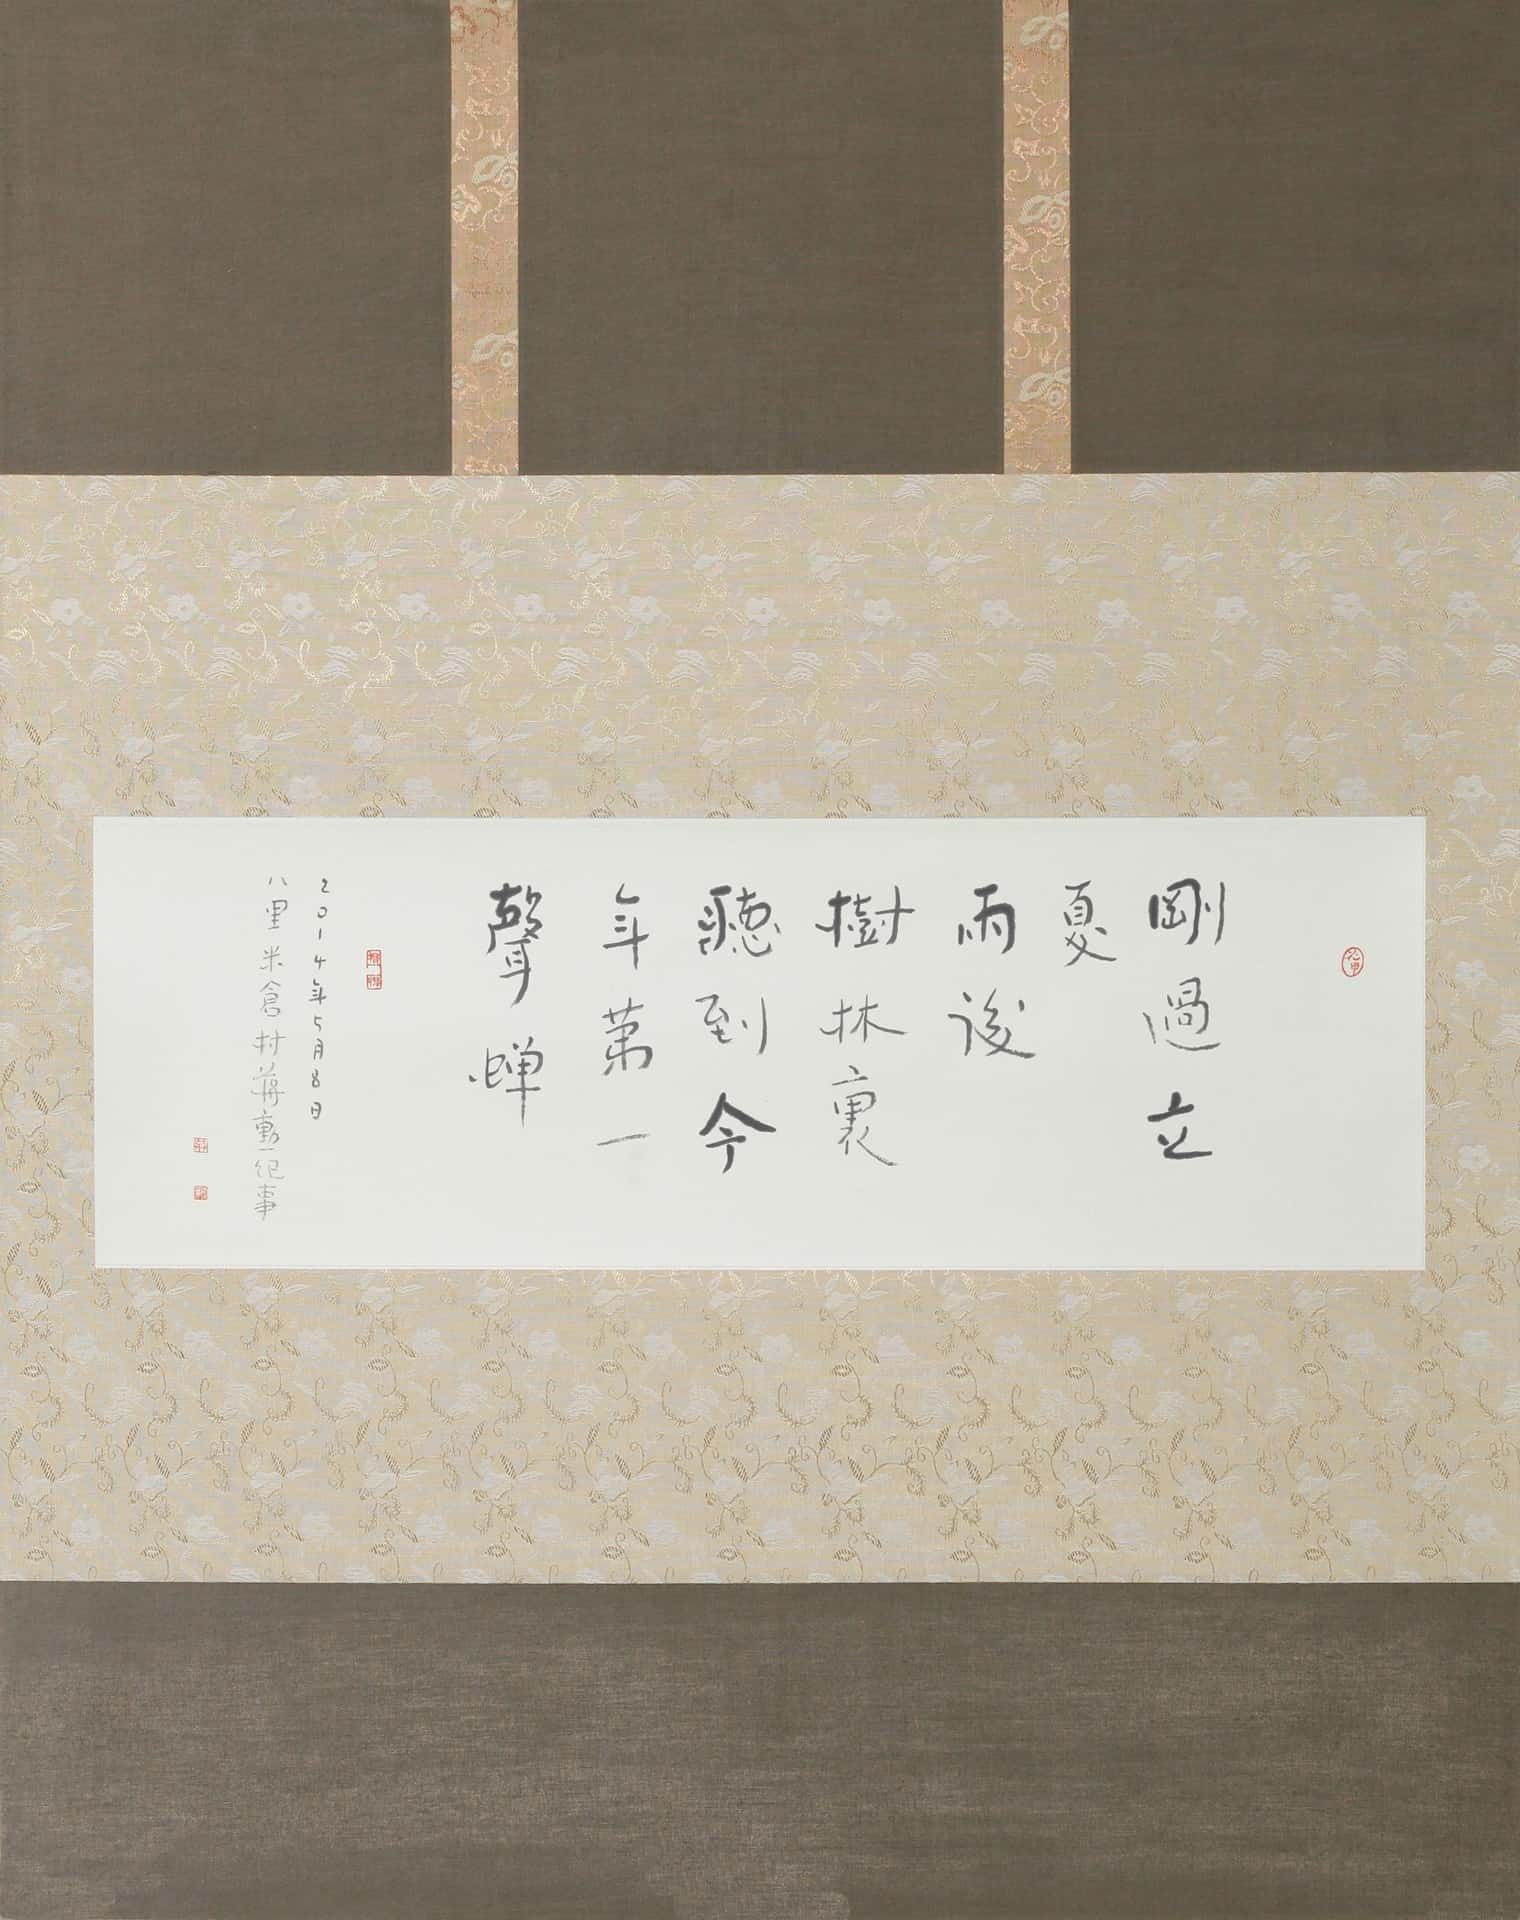 剛過立
夏
雨後
樹林裏
聽到今
年第一
聲蟬
2014年5月8日
八里米倉村蔣勳紀事